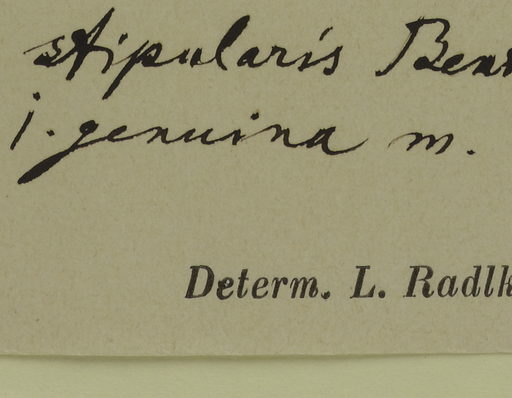 stipularis Ben
j. genuina m.
Determ. L. Radlk